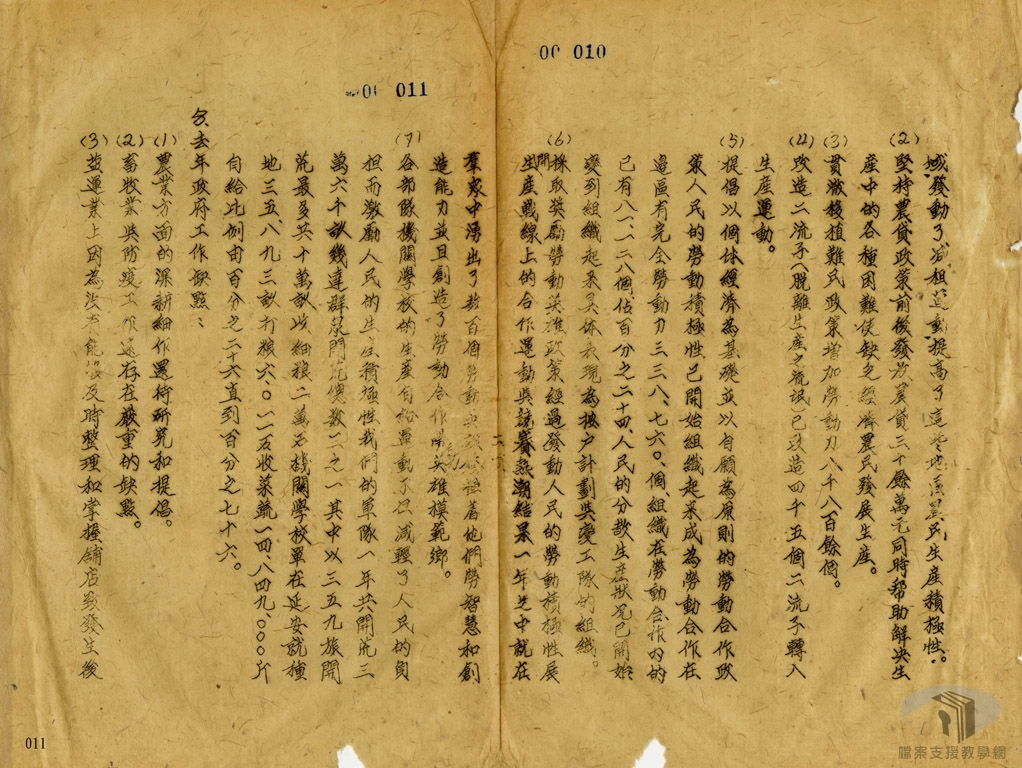 00 010
域發動了減租運動提高了這些地區農民生產積極性。
(2)堅持農貸政策前後發放農貸三千餘萬元同時帮助解決生
產中的各種困難使缺乏經濟農民發展生產。
(3)貫澈移植難民政策增加勞動力八千八百餘個。
(4)改造二流子(脫離生產之流氓已改造四千五個二流子轉入
生產運動。
(5)提倡以個体經濟為基礎並以自願為原則的勞動合作政
策人民的勞動積極性已開始組織起來成為勞動合作在
邊區有完全勞動力三三八、七六〇、個、組織在勞動合作內的
已有八一、一二八個、佔百分之二十四、人民的分散生產狀况已開始
變到組織起來具体表現為按户計劃與變工隊的組織。
(6)採取獎勵勞動英雄政策經過發動人民的勞動積極性展
開生產戰線上的合作運動與競賽熱潮結果一年之中就在
00 011
羣衆中湧出了數百個勞動英雄 著他們勞智慧和創
造能力並且創造了勞動合作 英雄模範鄉。
(7)各部隊機關學校的生產自給運動不但減輕了人民的負
担而激勵人民的生產積極性我們的軍隊一年共開荒三
萬六千畝幾達群衆開荒總數二之一其中以三五九旅開
荒最多共十萬畝收細糧二萬石機關學校單在延安就種
地三五、八九三畝打糧六、〇一一石收菜蔬一一四、八四九、〇〇〇斤
自給比例由百分之二十六直到百分之七十六。
8、去年政府工作缺點：
(1)農業方面的深耕細作還待研究和提倡。
(2)畜牧業與防疫工作還存在嚴重的缺點。
(3)鹽運業上因為沒有能 及時整理和掌握舖店致發生後
011
檔案支援教學網